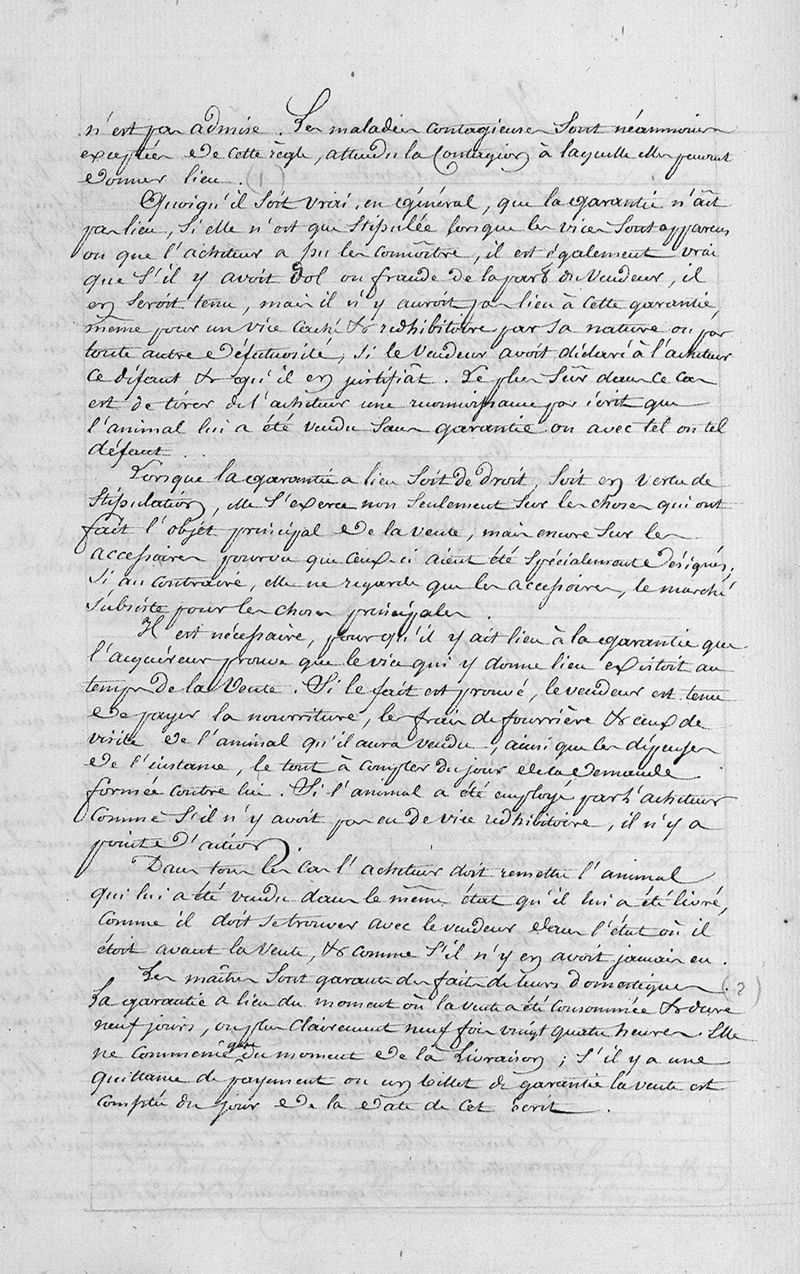 n'est pas admise. Les maladies contagieuses sont néanmoins
exceptées de cette règle, attendu la Contagion à laquelle elles peuvent
donner lieu. (1)
Quoiqu'il soit vrai, en général, que la garantie n'ait
pas lieu, si elle n'est que stipulée lorsque les vices sont apparens
ou que l'acheteur a pu les connoître, il est également vrai
que s'il y avoit dol ou fraude de la part du vendeur, il
en seroit tenu, mais il n'y auroit pas lieu à cette garantie,
même pour un vice caché & redhibitoire par sa nature ou par
toute autre défectuosité, si le vendeur avoit déclaré à l'acheteur
ce défaut & qu'il en justifiât. Le plus sûr dans ce cas
est de tirer de l'acheteur une reconnoissance par écrit que
l'animal lui a été vendu sans garantie ou avec tel ou tel
défaut.
Lorsque la garantie a lieu soit de droit, soit en vertu de
stipulation, elle s'exerce non seulement sur les choses qui ont
fait l'objet principal de la vente, mais encore sur les
accessoires pourvu que ceux-ci aient été spécialement désignés.
Si au contraire, elle ne regarde que les accessoires, le marché
subsiste pour les choses principales.
Il est nécessaire, pour qu'il y ait lieu à la garantie que
l'acquéreur prouve que le vice qui y donne lieu existoit au
temps de la Vente. Si le fait est prouvé, le vendeur est tenu
de payer la nourriture, les frais de fourrière & ceux de
visite de l'animal qu'il aura vendu, ainsi que les dépenses
de l'instance, le tout à compter du jour de la demande
formée contre lui. Si l'animal a été employé par l'acheteur
comme s'il n'y avoit pas eu de vice redhibitoire, il n'y a
point d'action.
Dans tous les cas l'acheteur doit remettre l'animal
qui lui a été vendu dans le même état qu'il lui a été livré,
comme il doit se trouver avec le vendeur dans l'état où il
étoit avant la vente, & comme s'il n'y en avoit jamais eu.
Les maîtres sont garants des faits de leurs domestiques. (2)
La garantie a lieu du moment où la vente a été consommée & dure
neuf jours, ou plus clairement neuf fois vingt quatre heures. Elle
ne commence que du moment de la Livraison; s'il y a une
quittance de payement ou un billet de garantie la vente est
comptée du jour de la date de cet écrit.